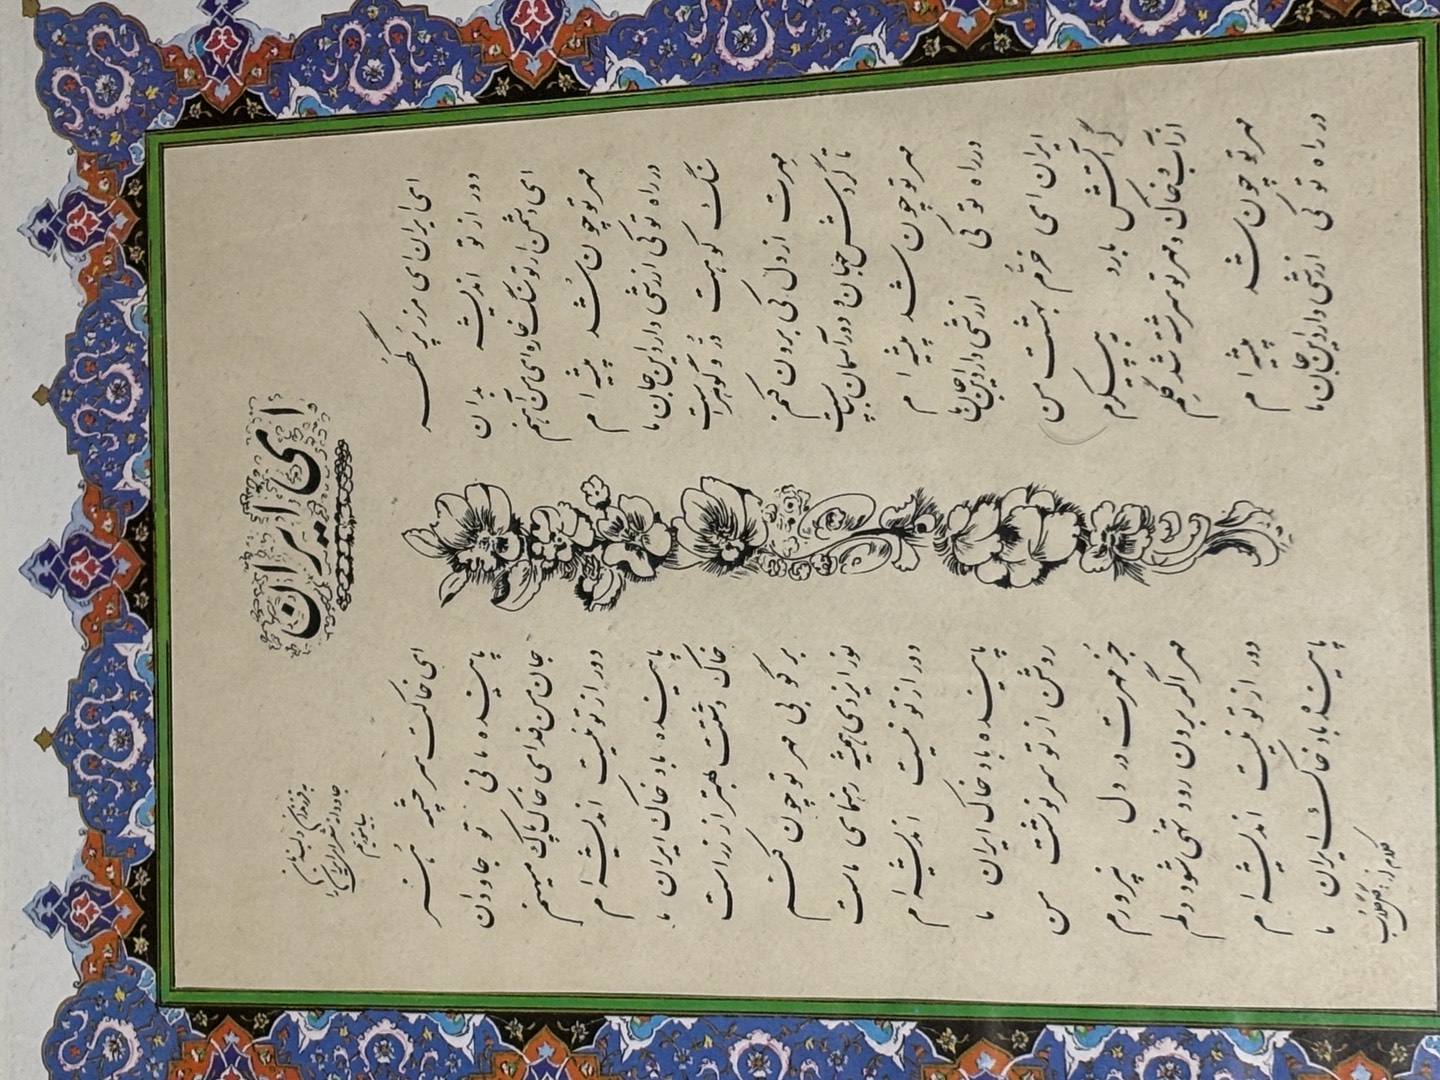 ای ایران
به فرزندان دلبندمان
جاودانه سرود ای ایران را
بیاموزیم
ای ایران ای مرز پر گهر ای خاکت سرچشمه هنر
دور از تو اندیشه بدان پاینده مانی تو جاودان
ای دشمن ار تو سنگ خاره‌ای من آهنم جان من فدای خاک پاک میهنم
مهر تو چون شد پیشه ام دور از تو نیست اندیشه ام
در راه تو کی ارزشی دارد این جان ما پاینده باد خاک ایران ما
سنگ کوهت دُر و گوهر است خاک دشتت بهتر از زر است
مهرت از دل کی برون کنم بر گو بی مهر تو چون کنم
تا گردش جهان و دور آسمان بپاست نور ایزدی همیشه رهنمای ماست
مهر تو چون شد پیشه ام دور از تو نیست اندیشه ام
در راه تو کی ارزشی دارد این جان ما پاینده باد خاک ایران ما
ایران ای خرّم بهشت من روشن از تو سرنوشت من
گر آتش بارد به پیکرم جز مهرت در دل نپرورم
از آب و خاک و مهر تو سرشته شد گلم مهر اگر برون رود تهی شود دلم
مهر تو چون شد پیشه ام دور از تو نیست اندیشه ام
در راه تو کی ارزشی دارد این جان ما پاینده باد خاک ایران ما
کلام از:
گل گلاب